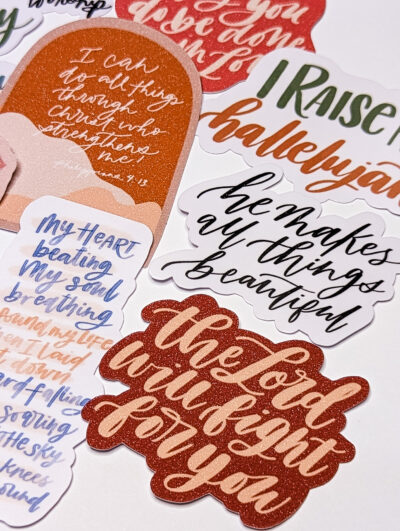 worship
y
you
do be done
in Lov
I can
do all things
through
Christ who
strengthens
me!
philippians 4:13
I RAISE
hallelujah
he makes
all things
beautiful
My HEART
beating
My soul
breathing
ound my LIFE
en I laid
t down
ard falling
soaring
THE sky
knees
ound
the Lord
will fight
for you